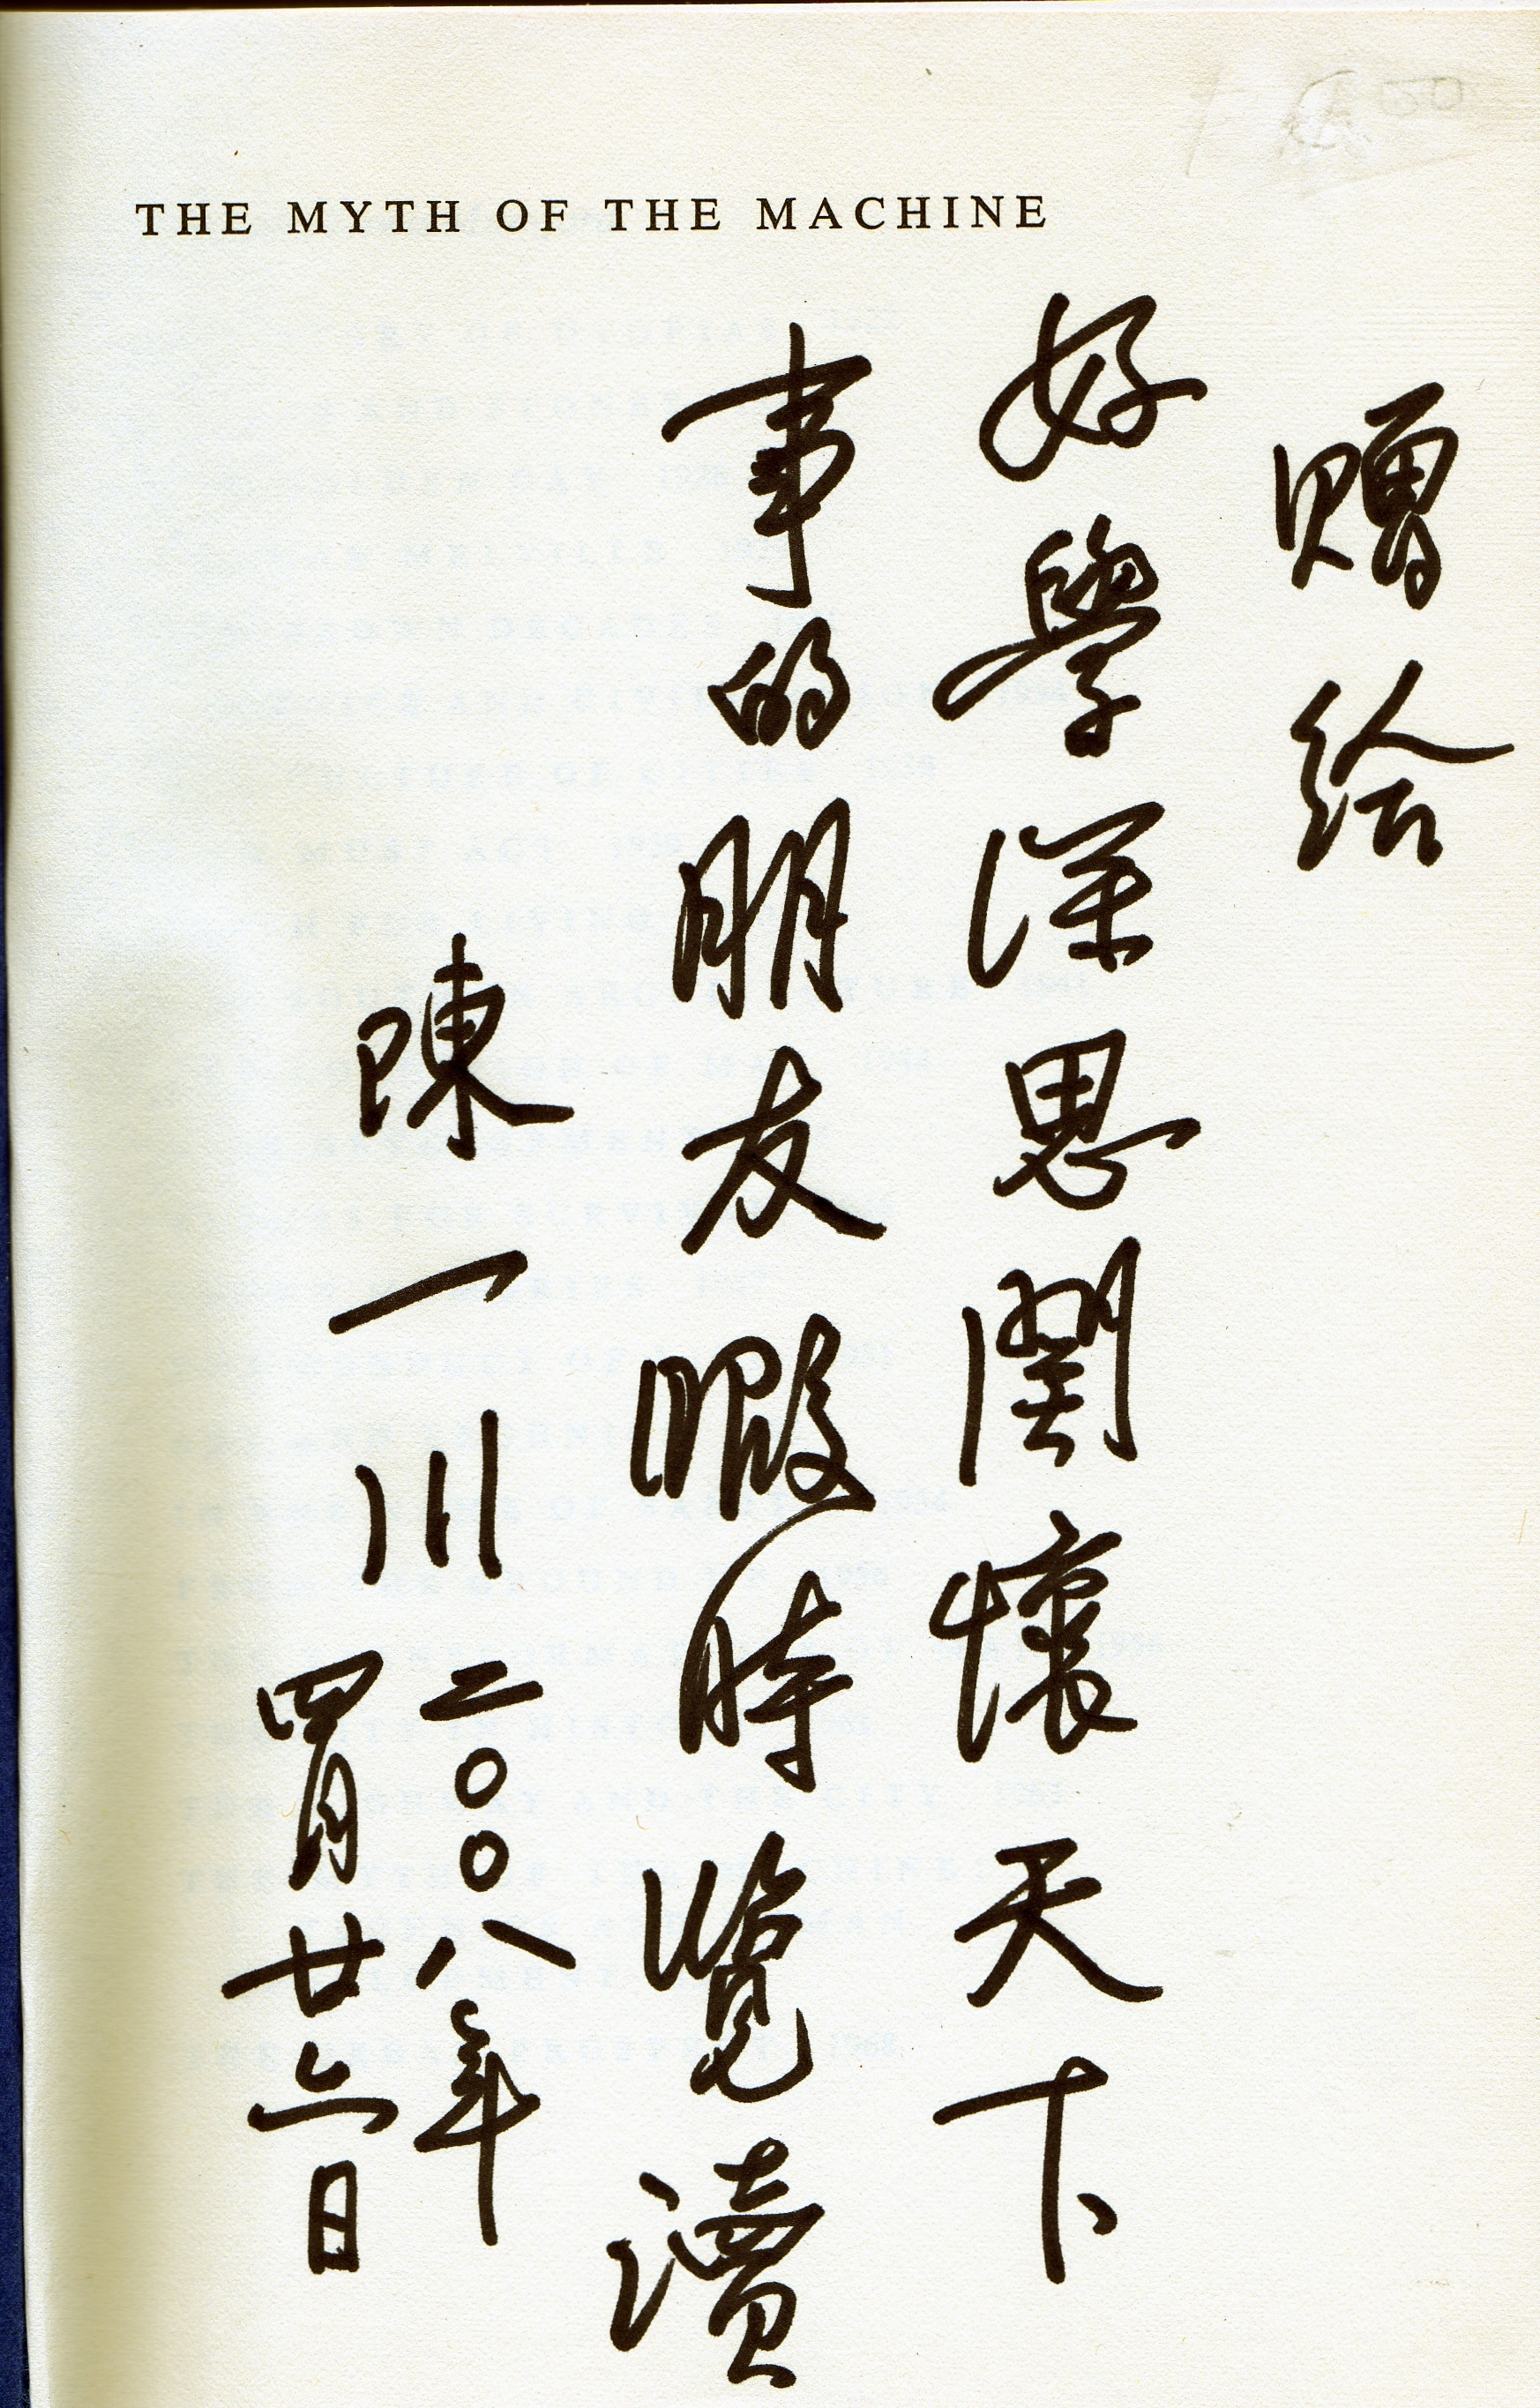 THE MYTH OF THE MACHINE
贈給
好學深思關懷天下
事的朋友暇時覽讀
陳一川
二〇〇八年
四月廿六日